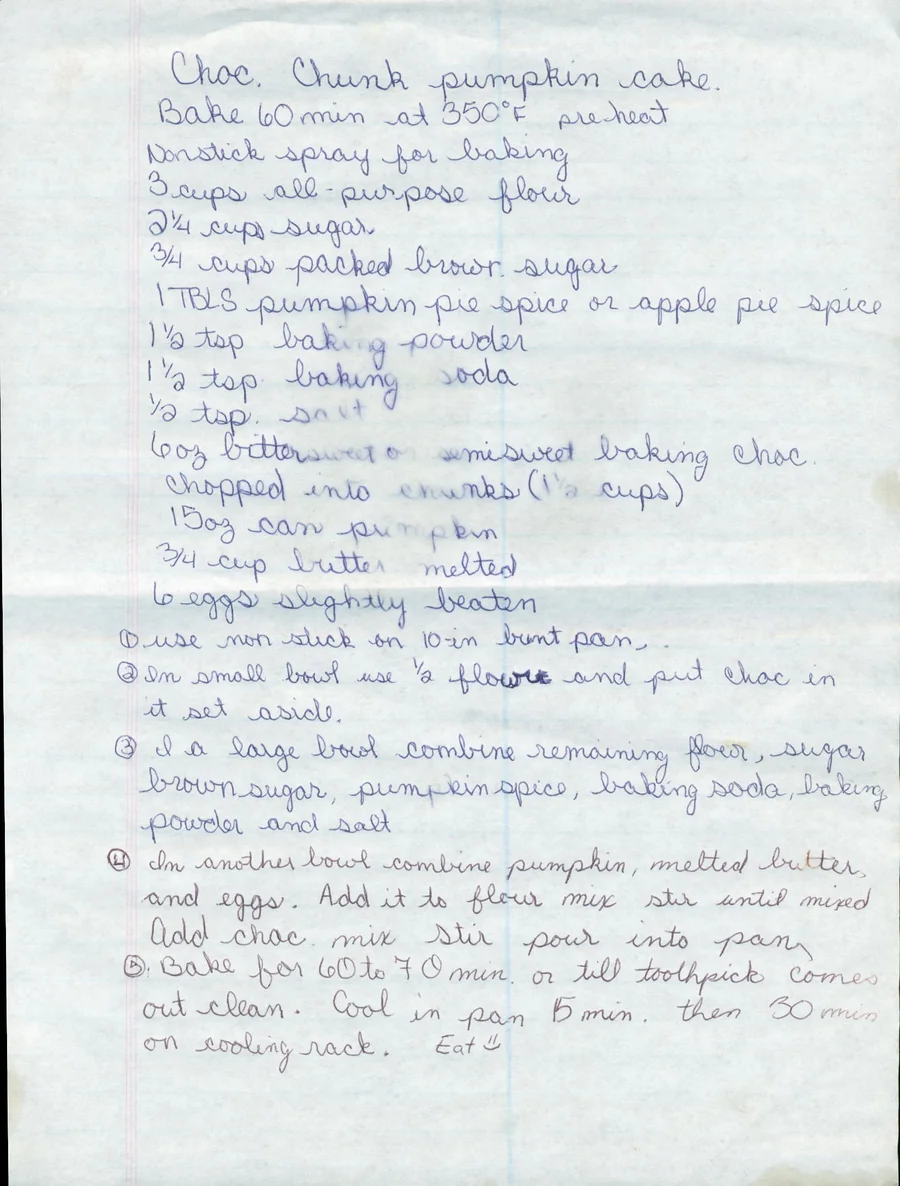 Choc. Chunk pumpkin cake.
Bake 60 min at 350°F preheat
Nonstick spray for baking
3 cups all-purpose flour
2 1/4 cups sugar
3/4 cups packed brown sugar
1 TBLS pumpkin pie spice or apple pie spice
1 1/2 tsp baking powder
1 1/2 tsp. baking soda
1/2 tsp. salt
6oz bittersweet or semisweet baking choc.
chopped into chunks (1 1/2 cups)
15oz can pumpkin
3/4 cup butter melted
6 eggs slightly beaten
① use non stick on 10-in bunt pan.
② In small bowl use 1/2 flour and put choc in
it set aside.
③ I a large bowl combine remaining flour, sugar
brown sugar, pumpkin spice, baking soda, baking
powder and salt
④ In another bowl combine pumpkin, melted butter,
and eggs. Add it to flour mix stir until mixed
Add choc. mix stir pour into pan,
⑤. Bake for 60 to 70 min. or till toothpick comes
out clean. Cool in pan 15 min. then 30 min
on cooling rack. Eat